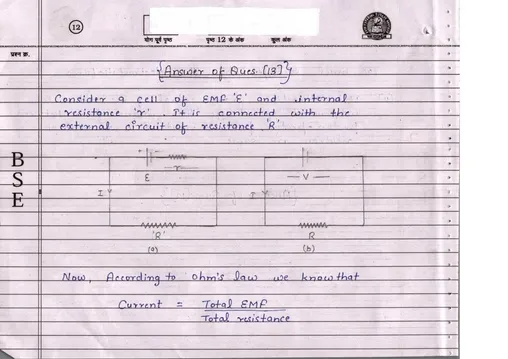 12
योग पूर्व पृष्ठ पृष्ठ 12 के अंक कुल अंक
प्रश्न क्र.
{Answer of Ques. [13]}
Consider a cell of EMF 'E' and internal
resistance 'r'. It is connected with the
external circuit of resistance 'R'
B
S
E
r
E
V
I
I
'R'
R
(a)
(b)
Now, According to ohm's law we know that
Current = Total EMF
Total resistance